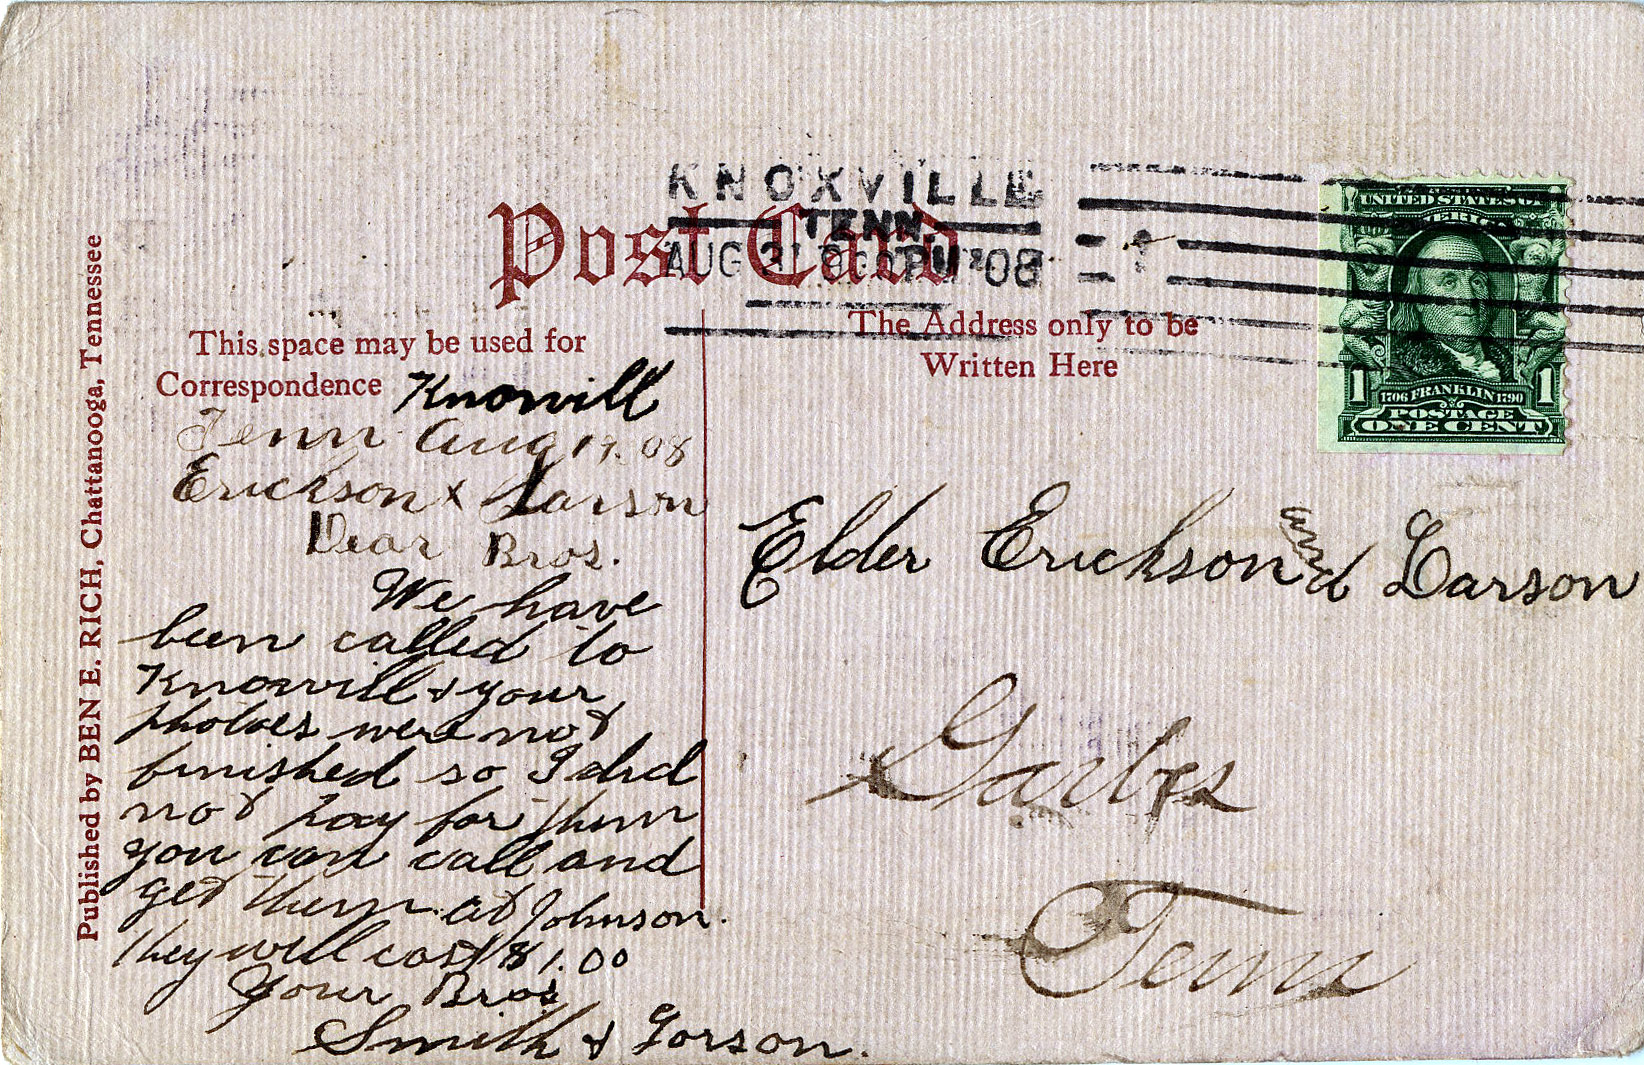 KNOXVILLE
TENN.
AUG 31 '08
Post Card
This space may be used for
Correspondence
The Address only to be
Written Here
UNITED STATES OF
AMERICA
1706 FRANKLIN 1790
1 1
POSTAGE
ONE CENT
Published by BEN E. RICH, Chattanooga, Tennessee
Knoxvill
Tenn Aug 19. 08
Erickson & Larson
Dear Bros.
We have
been called to
Knoxvill & your
photoes were not
finished so I did
not pay for them
you can call and
get them at Johnson.
they will cost $1.00
Your Bros.
Smith &
Elder Erickson and Larson
Tenn